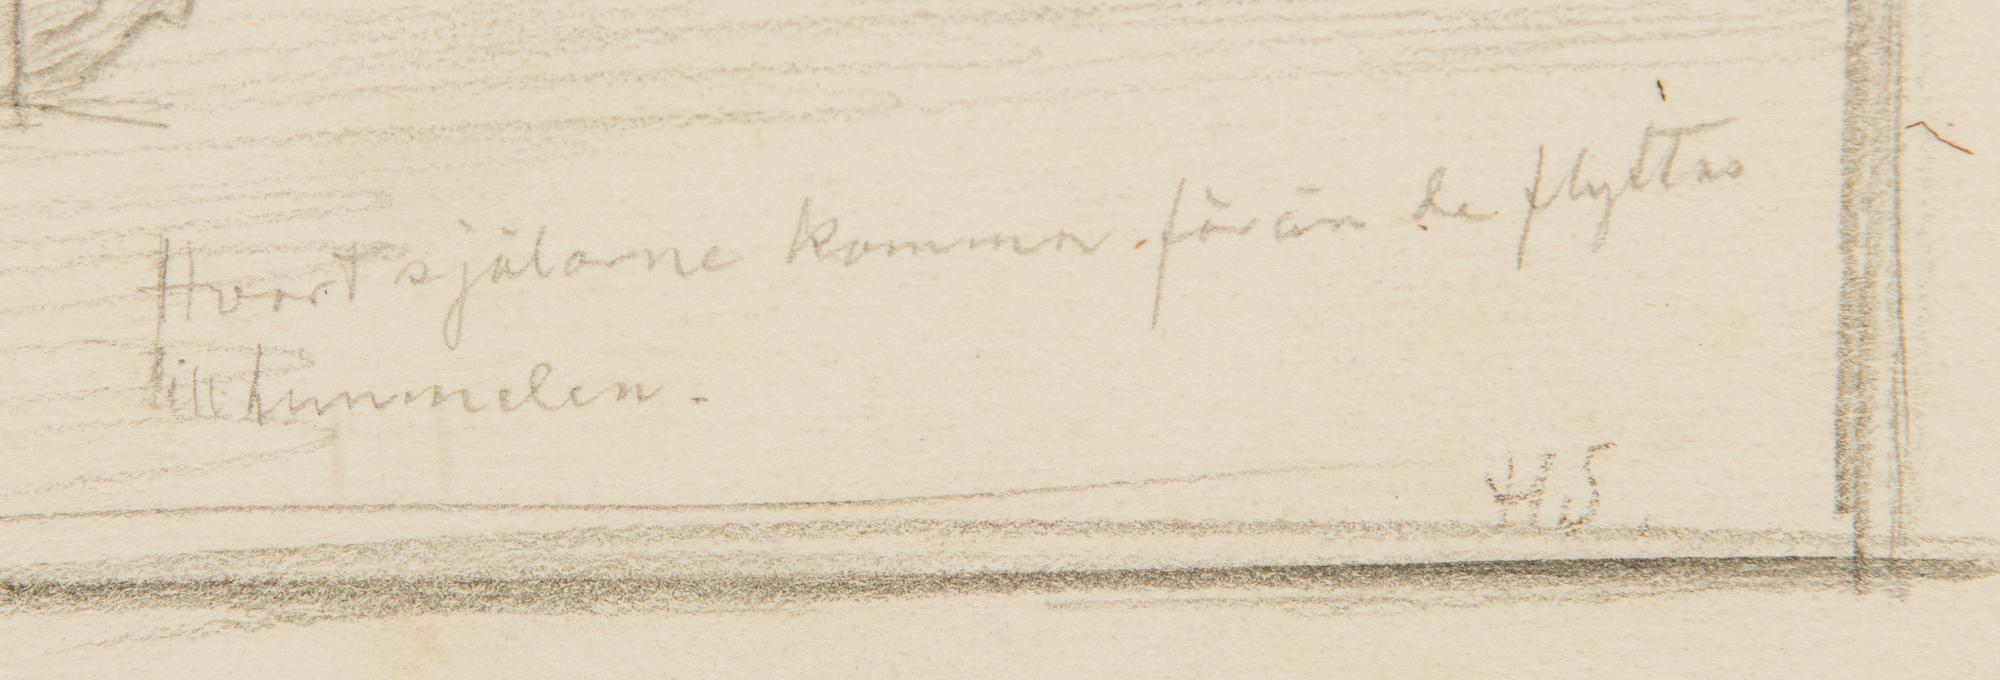 Hvart själarne komma förän de flyttas
till himmelen.
HS.